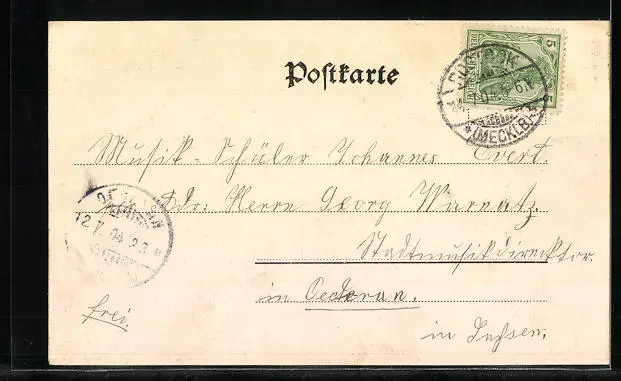 Postkarte
5
(MECKLB.)
Musik-Schüler Johannes Evert.
Adr: Herrn Georg Warnatz.
Stadtmusikdirector.
in Oederan.
in Sachsen.
12.
04
frei.